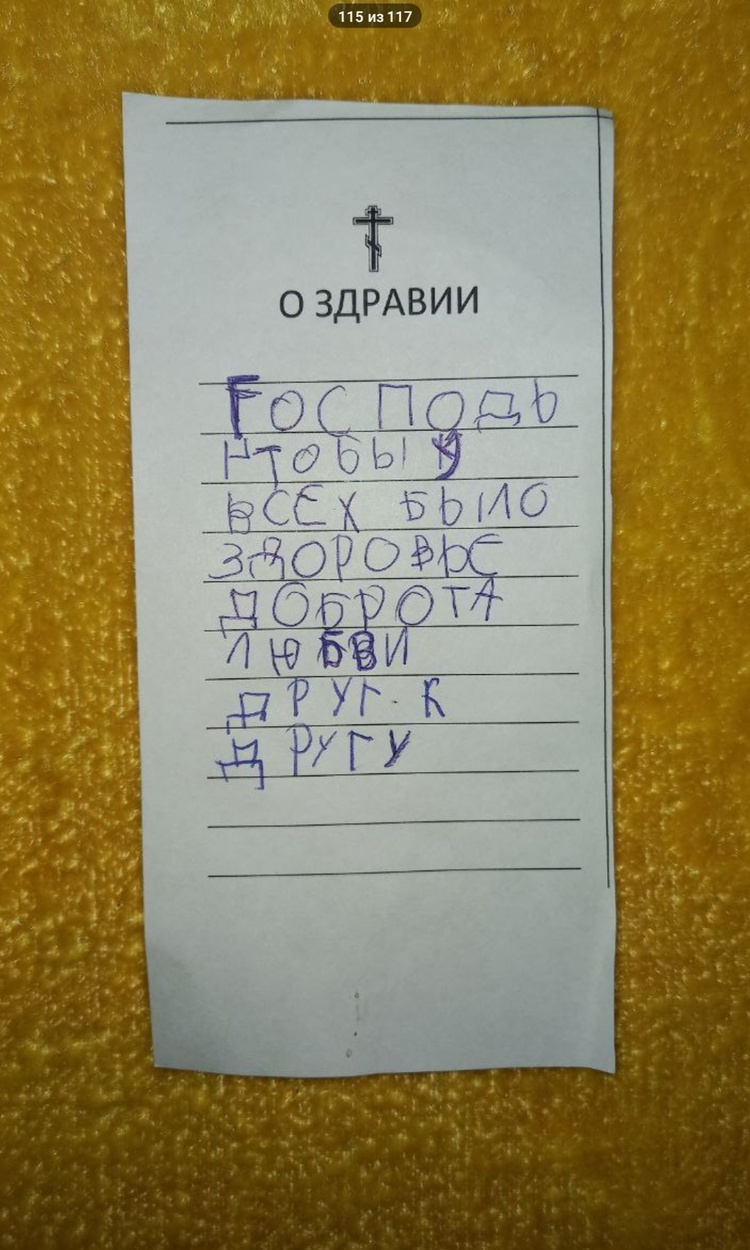 115 из 117
О ЗДРАВИИ
ГОСПОДЬ
ЧТОБЫ У
ВСЕХ БЫЛО
ЗДОРОВЬЕ
ДОБРОТА
ЛЮБВИ
ДРУГ. К
ДРУГУ